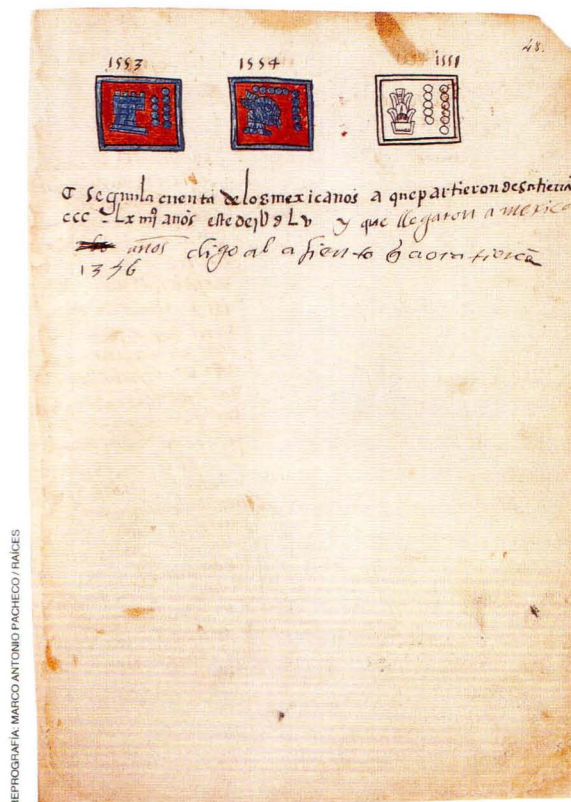 48.
1553 1554 1554 1555
Segun la cuenta de los mexicanos a que partieron de su tierra
ccc Lx años este de jU d Lv y que llegaron a mexico
años digo al asiento q̃ aora tienẽ
1356
REPROGRAFÍA: MARCO ANTONIO PACHECO / RAÍCES